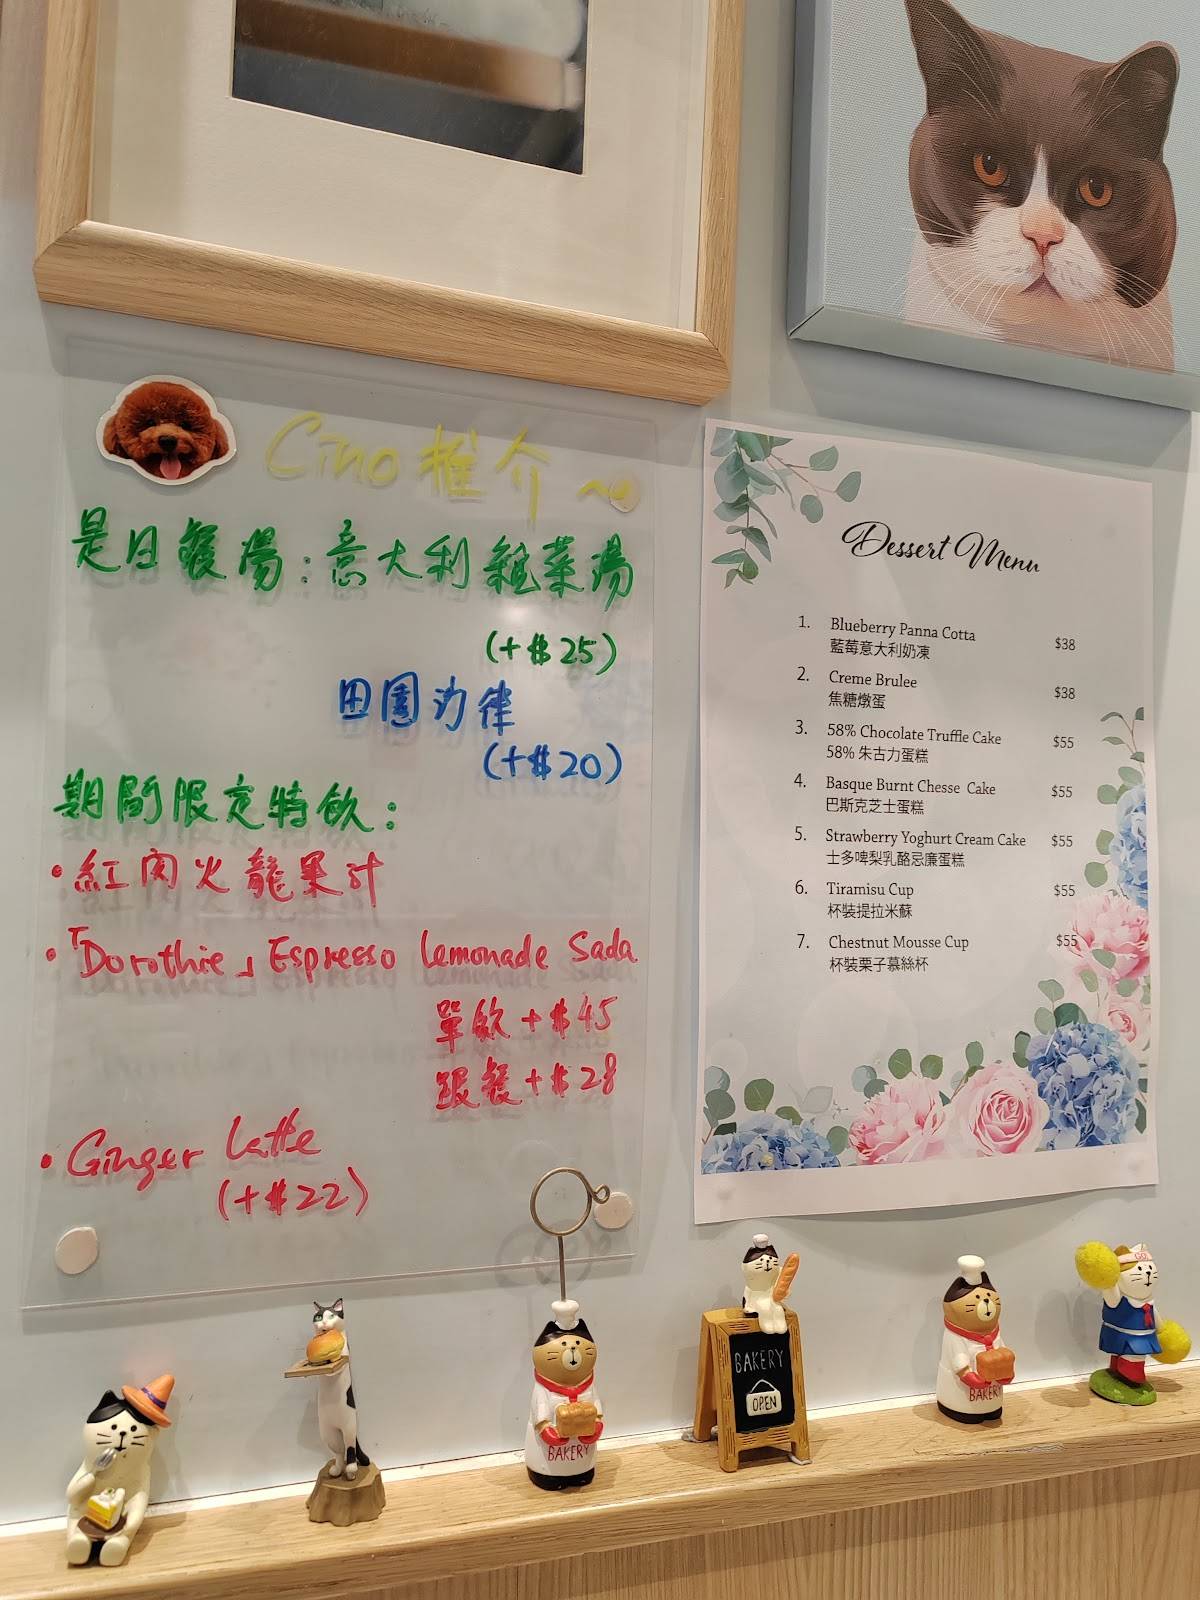 Cino 推介~
是日餐湯:意大利雜菜湯
(+$25)
田園沙律
(+$20)
期間限定特飲:
•紅肉火龍果汁
•「Dorothie」Espresso Lemonade Sada
單飲+$45
跟餐+$28
•Ginger Latte
(+$22)
Dessert Menu
1. Blueberry Panna Cotta $38
藍莓意大利奶凍
2. Creme Brulee $38
焦糖燉蛋
3. 58% Chocolate Truffle Cake $55
58% 朱古力蛋糕
4. Basque Burnt Chesse Cake $55
巴斯克芝士蛋糕
5. Strawberry Yoghurt Cream Cake $55
士多啤梨乳酪忌廉蛋糕
6. Tiramisu Cup $55
杯裝提拉米蘇
7. Chestnut Mousse Cup $55
杯裝栗子慕絲杯
BAKERY
BAKERY
OPEN
BAKERY
GO!